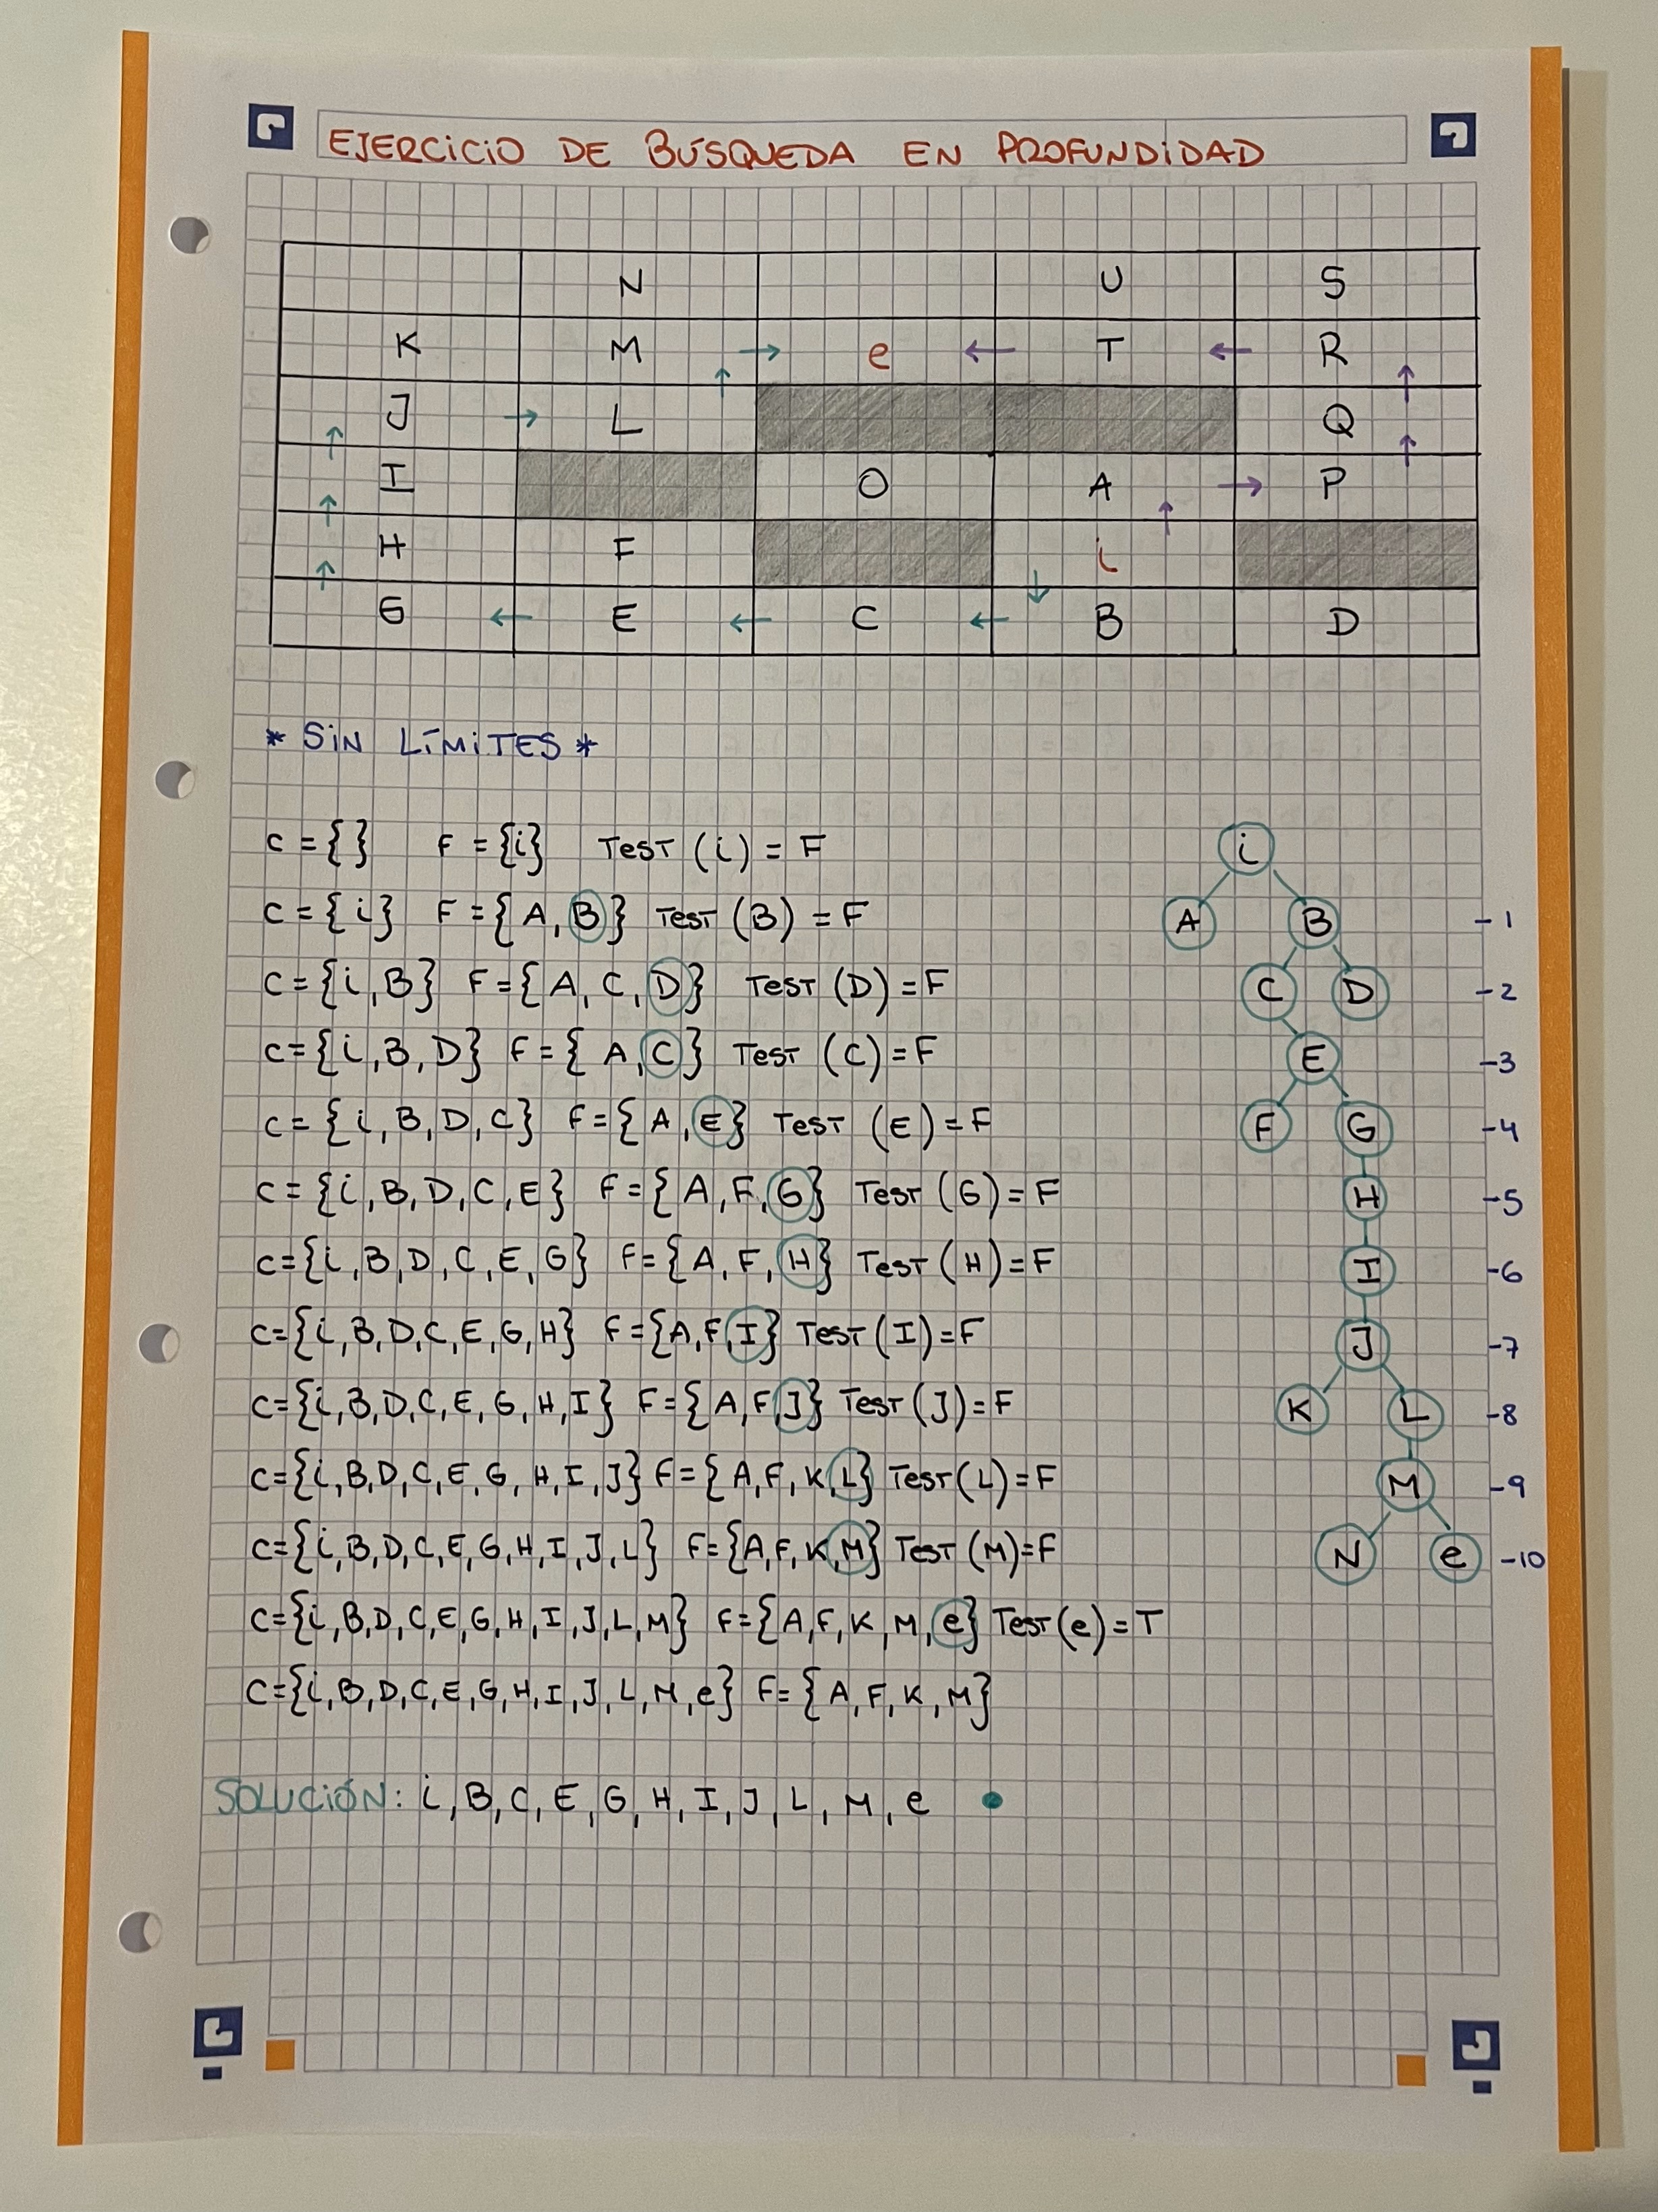 EJERCICIO DE BÚSQUEDA EN PROFUNDIDAD
N U S
K M → e ← T ← R
↑ ↑
J → L Q
↑ ↑
I O A → P
↑ ↑
H F i
↑ ↓
G ← E ← C ← B D
* SIN LÍMITES *
C = {} F = {i} Test (i) = F
C = {i} F = {A, B} Test (B) = F
C = {i, B} F = {A, C, D} Test (D) = F
C = {i, B, D} F = {A, C} Test (C) = F
C = {i, B, D, C} F = {A, E} Test (E) = F
C = {i, B, D, C, E} F = {A, F, G} Test (G) = F
C = {i, B, D, C, E, G} F = {A, F, H} Test (H) = F
C = {i, B, D, C, E, G, H} F = {A, F, I} Test (I) = F
C = {i, B, D, C, E, G, H, I} F = {A, F, J} Test (J) = F
C = {i, B, D, C, E, G, H, I, J} F = {A, F, K, L} Test (L) = F
C = {i, B, D, C, E, G, H, I, J, L} F = {A, F, K, M} Test (M) = F
C = {i, B, D, C, E, G, H, I, J, L, M} F = {A, F, K, M, e} Test (e) = T
C = {i, B, D, C, E, G, H, I, J, L, M, e} F = {A, F, K, M}
SOLUCIÓN: i, B, C, E, G, H, I, J, L, M, e
i
A B -1
C D -2
E -3
F G -4
H -5
I -6
J -7
K L -8
M -9
N e -10